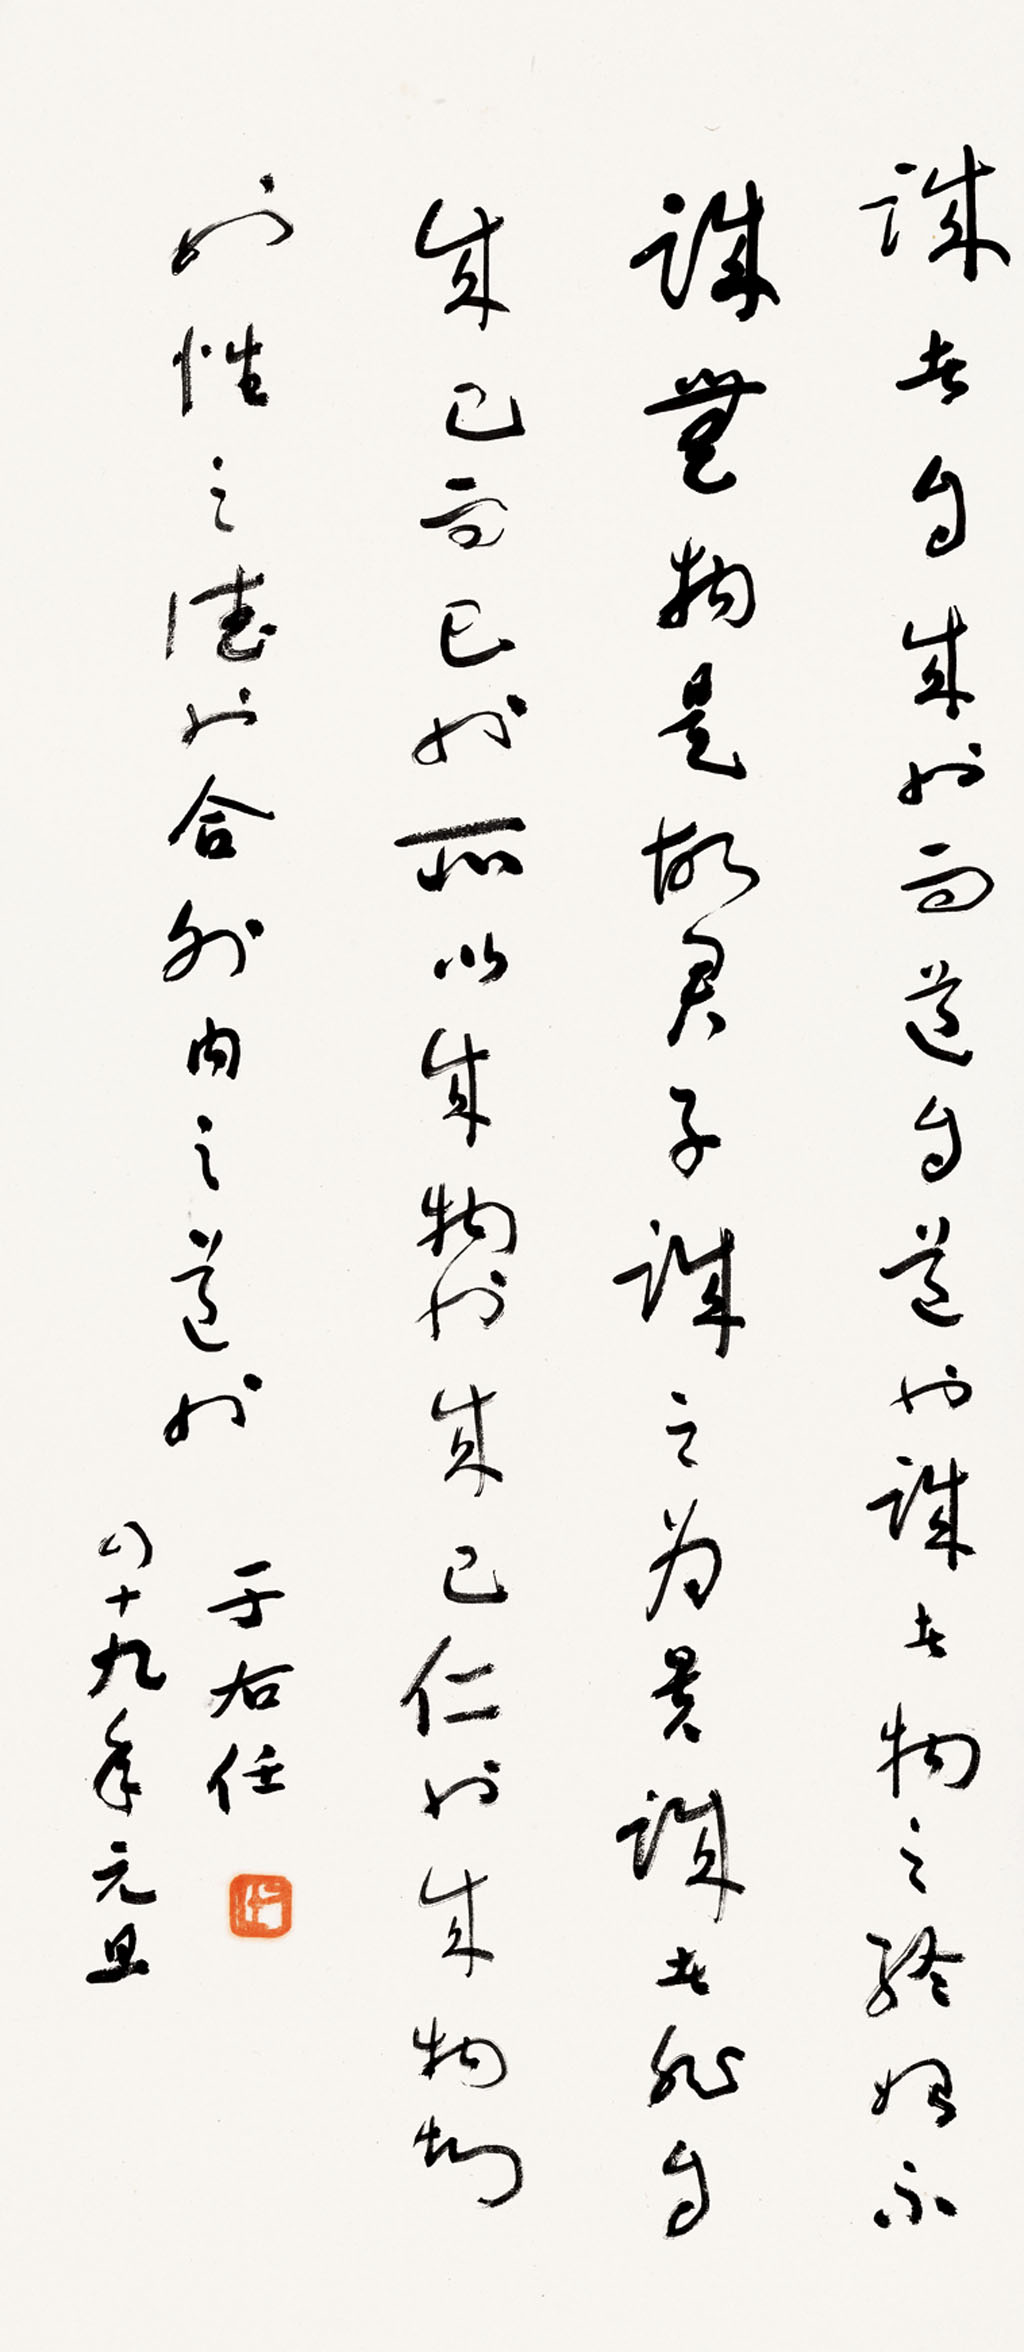 誠者自成也而道自道也誠者物之終始不
誠無物是故君子誠之為貴誠者非自
成己而已也所以成物也成己仁也成物知
也性之德也合外內之道也
于右任
四十九年元旦